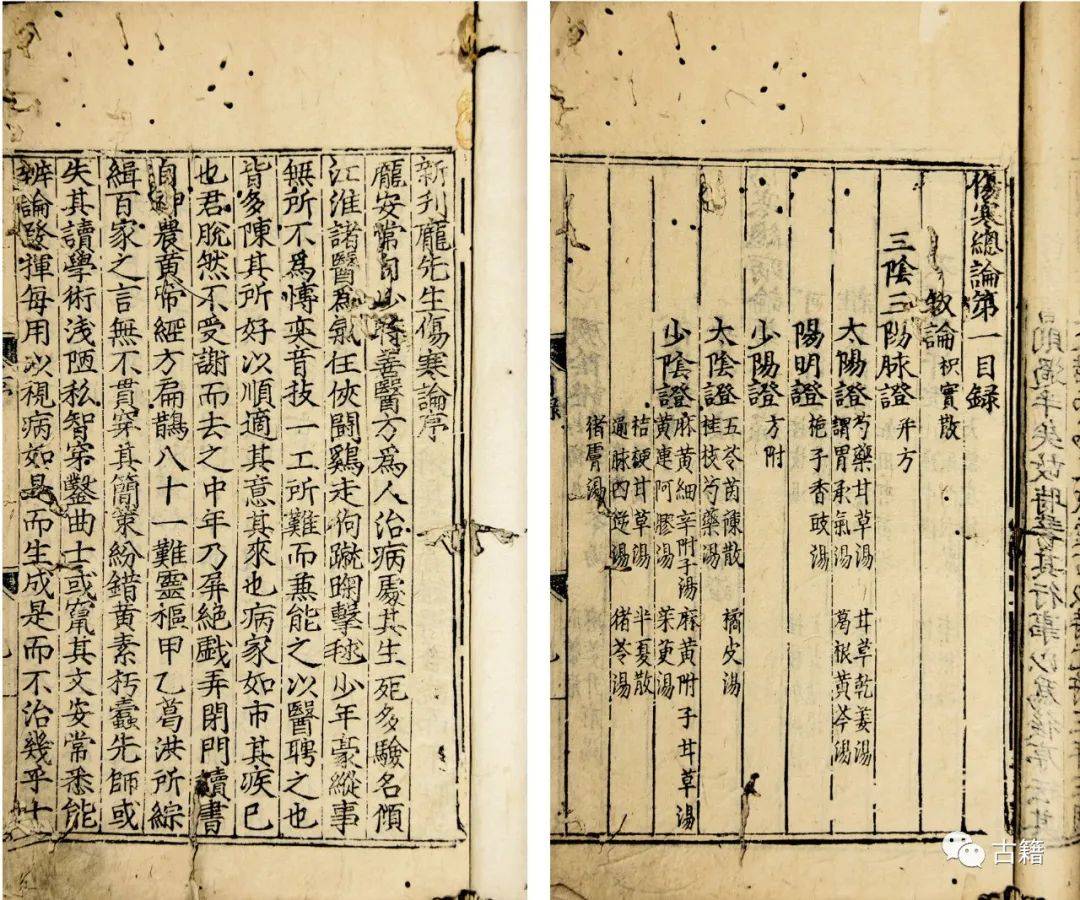 新刋龐先生傷寒論序
龐安常自少時善醫方爲人治病處其生死多驗名傾
江淮諸醫爲氣任俠鬪鷄走狗蹴踘擊毬少年豪縱事
無所不爲博奕音技一工所難而蒹能之以醫聘之也
皆多陳其所好以順適其意其來也病家如市其疾已
也君脫然不受謝而去之中年乃屏絕戯弄閉門讀書
自神農黄帝經方扁鵲八十一難靈樞甲乙葛洪所綜
緝百家之言無不貫穿其簡策紛錯黄素朽蠹先師或
失其讀學術浅陋私智穿鑿曲士或竄其文安常悉能
辨論發揮每用以視病如是而生成是而不治幾乎十
傷寒總論第一目録
敘論 枳實散
三陰三陽脉證 并方
太陽證 芍藥甘草湯 甘草乾姜湯
調胃承氣湯 葛根黄芩湯
陽明證 梔子香豉湯
少陽證 方附
太陰證 五苓茵蔯散 橘皮湯
桂枝芍藥湯
少陰證 麻黄細辛附子湯 麻黄附子甘草湯
黄連阿膠湯 茱萸湯
桔梗甘草湯 半夏散
通脉四逆湯 猪苓湯
猪膚湯
古籍